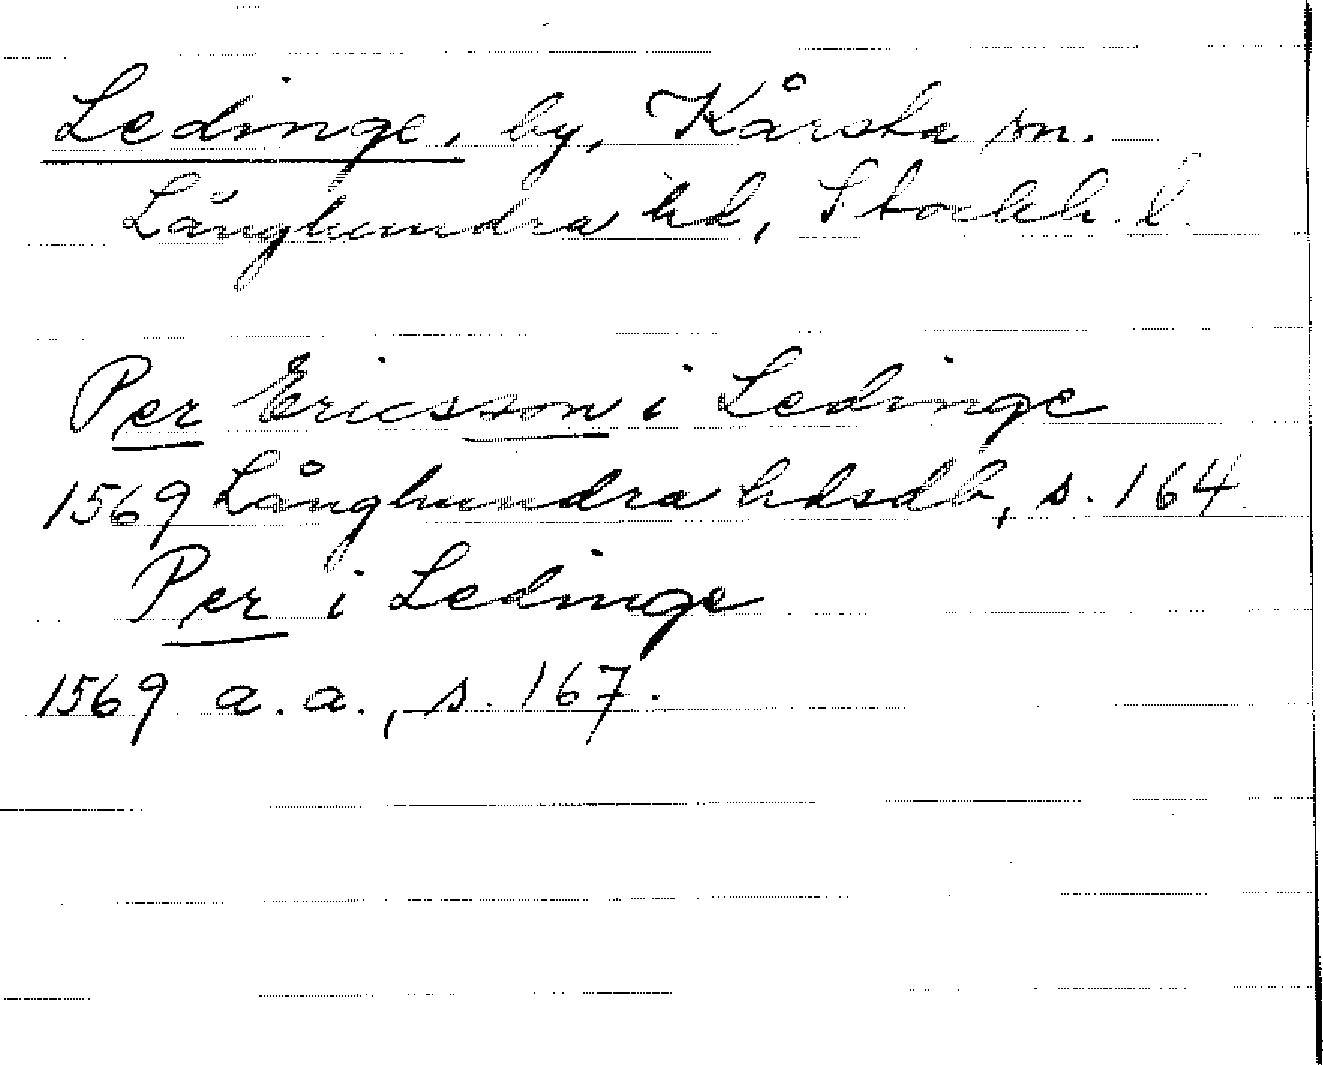 Ledinge, by, Kårsta sn.
Långhundra hd, Stockh. l.
Per Ericsson i Ledinge
1569 Långhundra hdsdb, s. 164
Per i Ledinge
1569 a. a., s. 167.